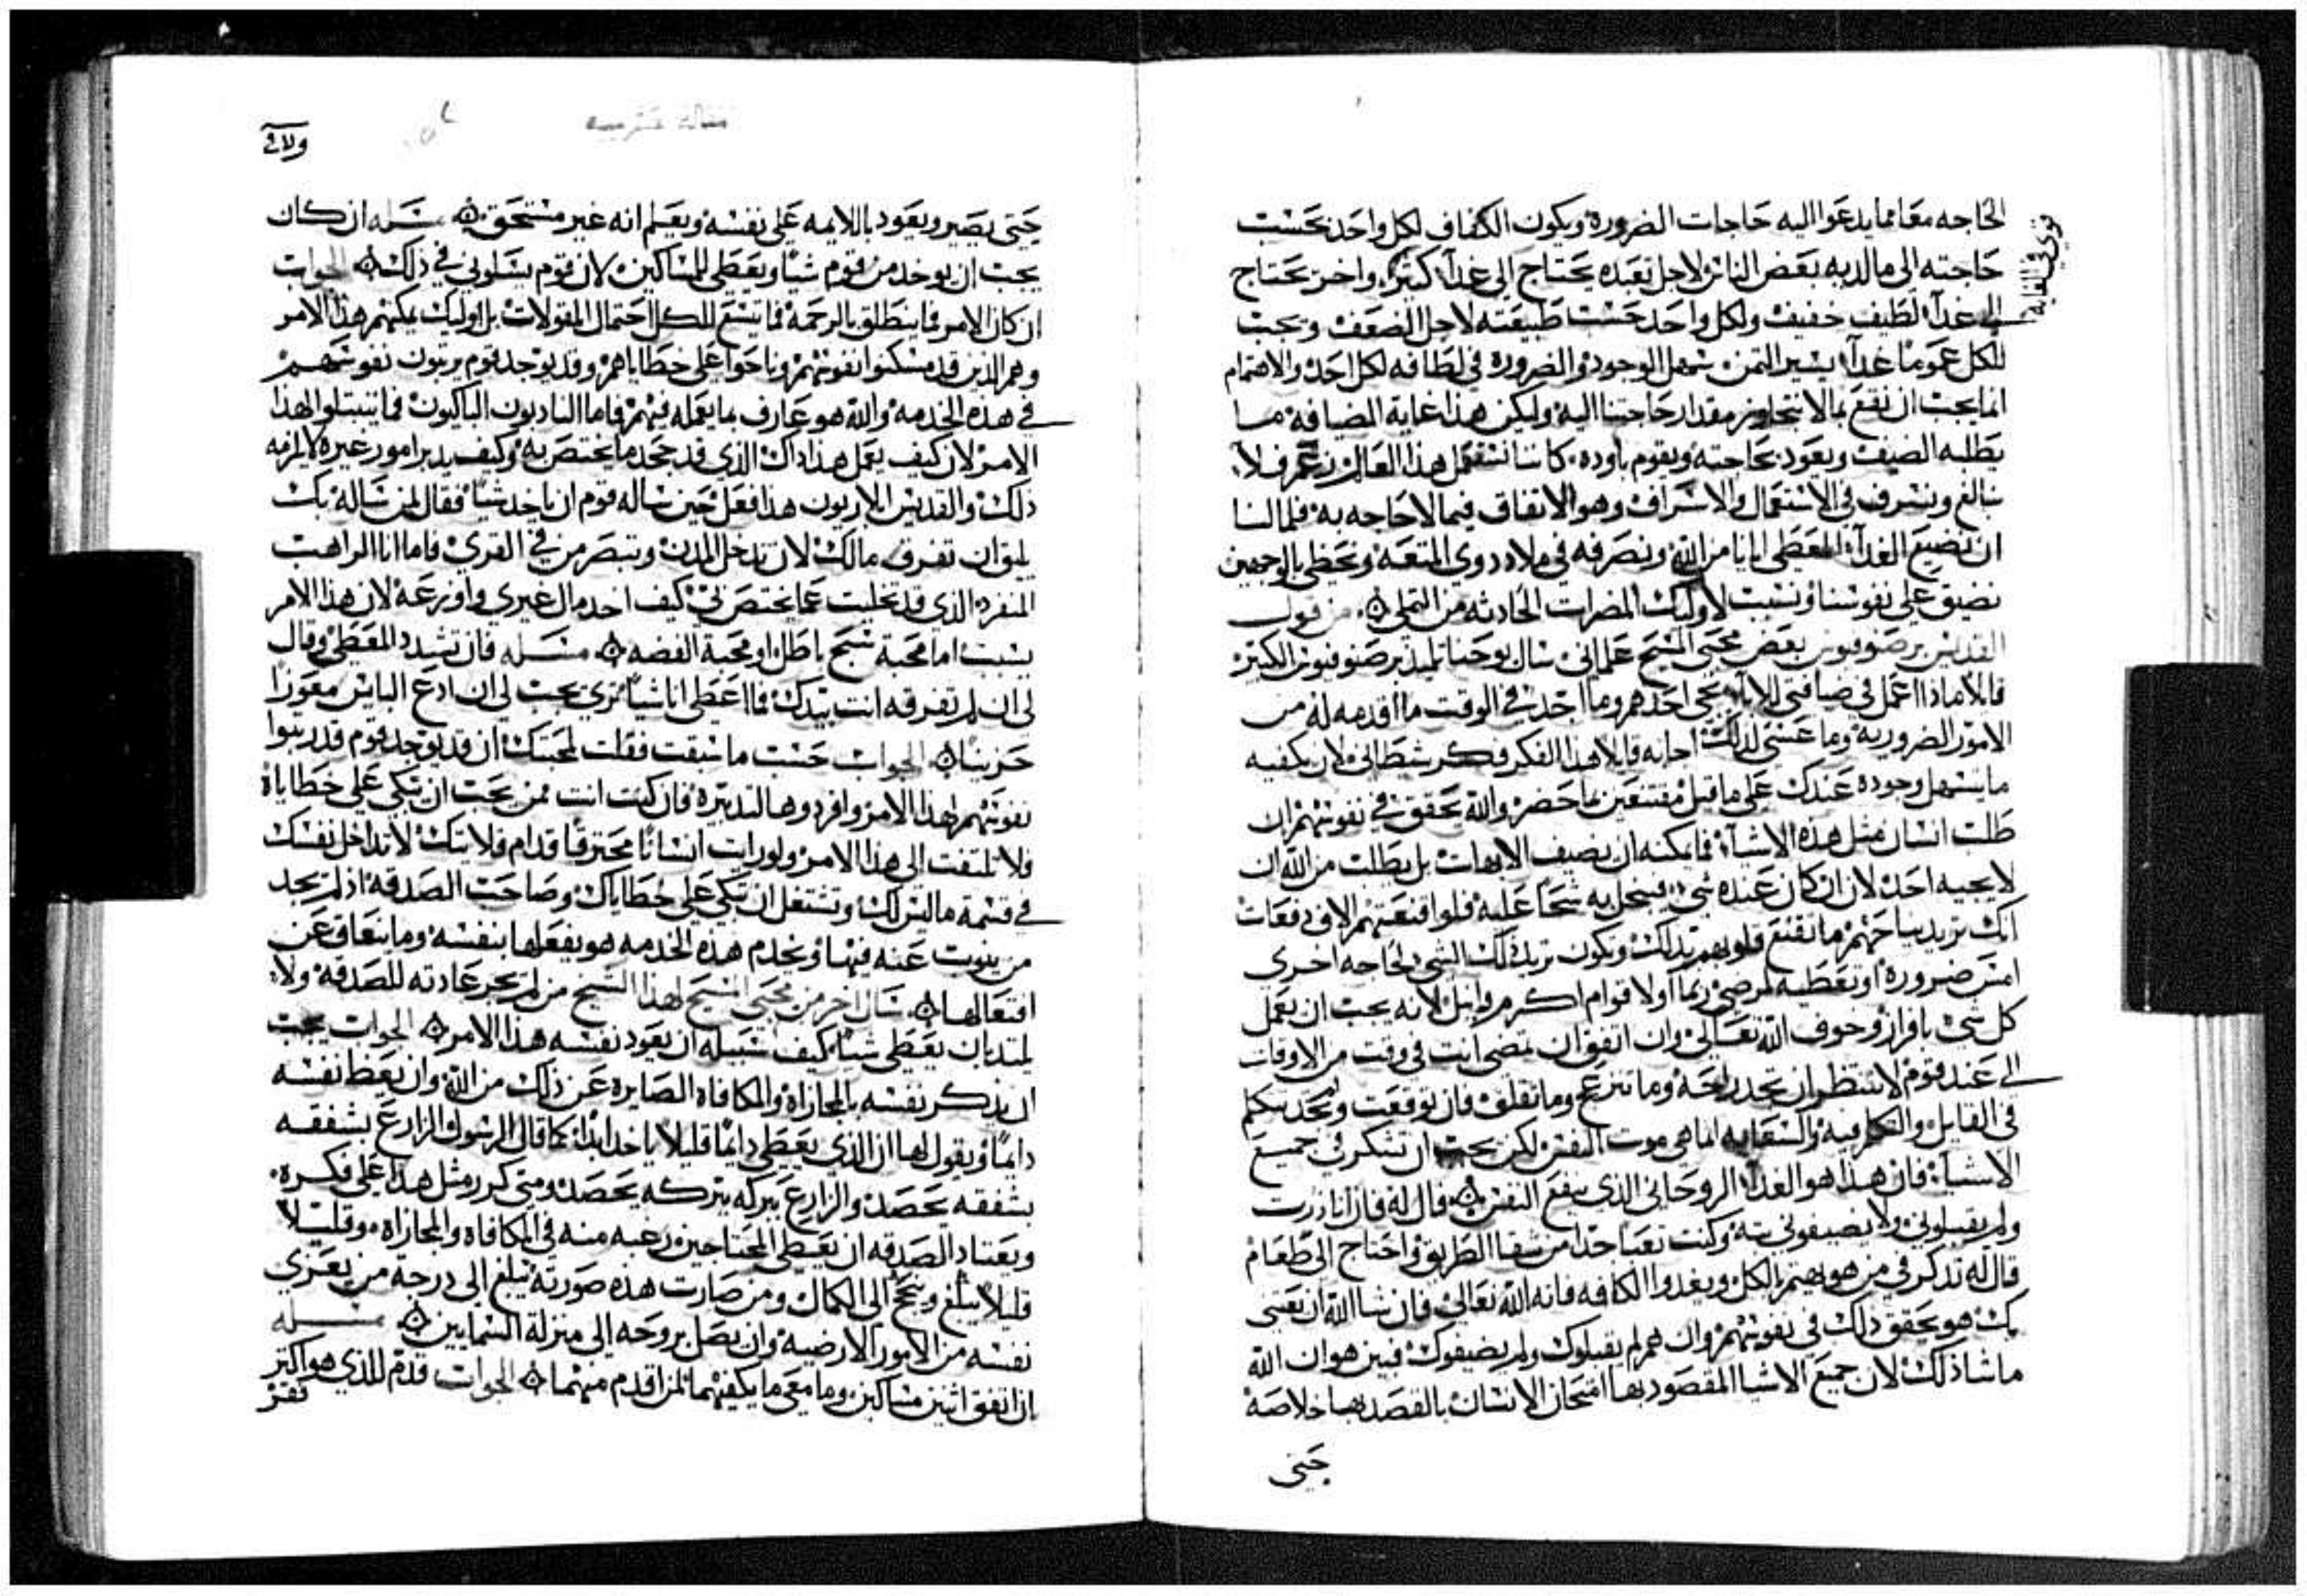 الحاجه معا مما يدعوا اليه حاجات الضرورة ويكون الكفاف لكل واحد بحسب
حاجته الى مالديه بعض الناس لاجل تعبده يحتاج الى غدآ كثير واخر يحتاج
الى غدآ لطيف خفيف ولكل واحد حسب طبيعته لاجل الضعف ويجب
للكل عموما غدآ يسير الثمن سهل الوجود والضرورة في لطافه لكل احد والاهتمام
انما يجب ان يقع بما لا يتجاوز مقدار حاجتنا اليه وليكن هذا غاية الضيافه مما
يطلبه الضيف ويعود بحاجته ويقوم باوده كاننا نستعمل هذا العالم زعم فلا
نبالغ ونسرف في الاستعمال والاسراف وهو الانفاق فيما لا حاجه به فما لنا
ان نضيع الغدآ المعطى ايانا من الله ونصرفه في ملاد دوي المتعه ونخطى بالوجهين
نضيق على نفوسنا ونسبب لاوليك المضرات الحادثه من التملى من قول
القديس برصنوفيوس بعض محبى المسيح علمانى سال يوحنا تلميد برصنوفيوس الكبير
قايلا مادا اعمل في ضيافتى للابآ يجى احدهم وما اجد في الوقت ما اقدمه له من
الامور الضروريه وما عسى لذلك اجابه قايلا هذا الفكر فكر شطانى لان يكفيه
ما يسهل وجوده عندك على ما قيل مقتنعين بما حضر والله يحقق في نفوسهم ان
طلب انسان مثل هذه الاشيآ فما يمكنه ان يضيف الابهات بل يطلب من الله ان
لا يجيه احد لان ان كان عنده شى فيبخل به شحا عليه فلو اقنعتهم الاف دفعات
انك تريد بياحهم ما تقنع قلوبهم بدلك ويكون تريد ذلك الشى لحاجه اخرى
امس ضروره او تعطيه لمرضى ربما او لاقوام اكرم وانبل لانه يجب ان يعمل
كل شى بافراز وخوف الله تعالى وان اتفق ان تمضى انت في وقت من الاوقات
الى عند قوم لا تنتظر ان تجد راحة وما تنزعج وما تقلق فان توقعت ولم تجد تتكلم
في القايل والتكلم فيه والسعايه انما هي موت النفس لكن يجب ان تشكر في جميع
الاشيآ فان هذا هو الغدآ الروحانى الذى ينفع النفس قال له فان انا زرت
ولم يقبلونى ولا يضيفونى بته وكنت تعبا جدا من شقا الطريق واحتاج الى طعام
قال له تدكر في من هو يهتم بالكل ويغدوا الكافه فانه الله تعالى فان شا الله ان يعنى
بك هو يحقق ذلك في نفوسهم وان هم لم يقبلوك ولم يضيفوك فبين هو ان الله
ما شا ذلك لان جميع الاشيا المقصود بها امتحان الانسان بالقصد بها خلاصه
حتى
ولاى
حتى يصير ويعود باللايمه على نفسه ويعلم انه غير مستحق مسله ان كان
يجب ان يوخد من قوم شيا ويعطى للمساكين لان قوم يسلونى في ذلك الجواب
ان كان الامر فما ينطلق بالرحمة فما يتسع للكل احتمال المقولات بل اوليك يمكنهم هذا الامر
وهم الذين قد مسكنوا نفوسهم وناحوا على خطاياهم وقد يوجد قوم يرتبون نفوسهم
في هذه الخدمه والله هو عارف بما يعمله فيهم فاما النادبون الباكيون فما يتسلوا لهذا
الامر لان كيف يعمل هذا داك الذي قد جحد ما يختص به وكيف يدبر امور غيره لا يلزمه
ذلك والقديس ايلاريون هذا فعل حين ساله قوم ان ياخد شيا فقال لمن ساله بك
يليق ان تفرق مالك لان تدخل المدن وتبصر من في القرى فاما انا الراهب
المنفرد الذى قد تخليت عما يختص بى كيف اخد مال غيري واوزعه لان هذا الامر
يسبب اما محبة سبح باطل او محبة الفضه مسله فان تشدد المعطى وقال
لى ان لم تفرقه انت بيدك فما اعطى انا شيا ترى يجب لى ان ادع البايس معوزا
حزينا الجواب حسب ما سبقت فقلت لمحبتك ان قد يوجد قوم قد رتبوا
نفوسهم لهذا الامر وافردوها لتدبيره فان كنت انت ممن يجب ان تبكى على خطاياه
فلا تلتفت الى هذا الامر ولو رايت انسانا محترقا قدام قلايتك لا تداخل نفسك
في قسمة ما ليس لك وتشتغل ان تبكى على خطاياك وصاحب الصدقه اذ لم يجد
من ينوب عنه فيها ويخدم هذه الخدمه هو يفعلها بنفسه وما ينعاق عن
افتعالها سال اخر من محبى المسيح لهذا الشيخ من لم تجر عادته للصدقه ولا
يلتد بان يعطى شيا كيف سبيله ان يعود نفسه هذا الامر الجواب يجب
ان يذكر نفسه بالمجازاه والمكافاه الصايره عن ذلك من الله وان يعظ نفسه
دايما ويقول لها ان الذى يعطى دايما قليلا ياخد ابدا كما قال الرسول الزارع بشفقه
بشفقه يحصد والزارع ببركه ببركه يحصد ومتى كرر مثل هذا على فكره
ويعتاد الصدقه ان يعطى المحتاجين رغبه منه في المكافاه والمجازاه وقليلا
قليلا يبلغ ويجح الى الكمال ومن صارت هذه صورته يبلغ الى درجة من يعزى
نفسه من الامور الارضيه وان يصل بروحه الى منزلة السمايين مسله
ان اتفق اثنين مساكين وما معى ما يكفيهما لمن اقدم منهما الجواب قدم للذى هو اكثر
فقر